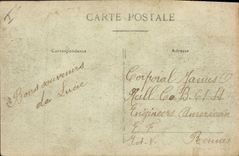 CARTE POSTALE
Correspondance
Adresse
Bons souvenirs
de Lucie
Corporal James O
Hill Co B.
Engineers American
E. F.
Rennes